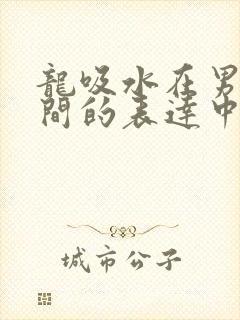 龍吸水在男
間的表達中
城市公子